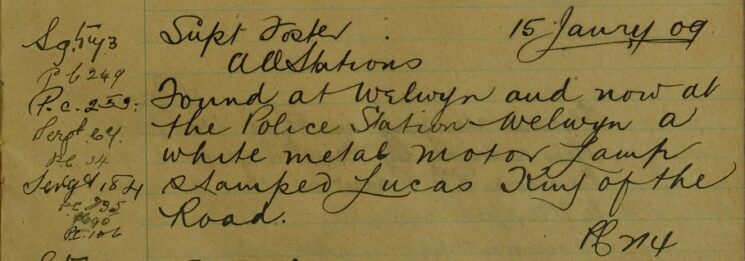 Supt Foster 15 Janry 09
All Stations
Found at Welwyn and now at
the Police Station Welwyn a
white metal Motor Lamp
stamped Lucas King of the
Road.
P.c. 259.
Sergt. 64.
PC. 34
Sergt 184
PC 235
Pc. 106